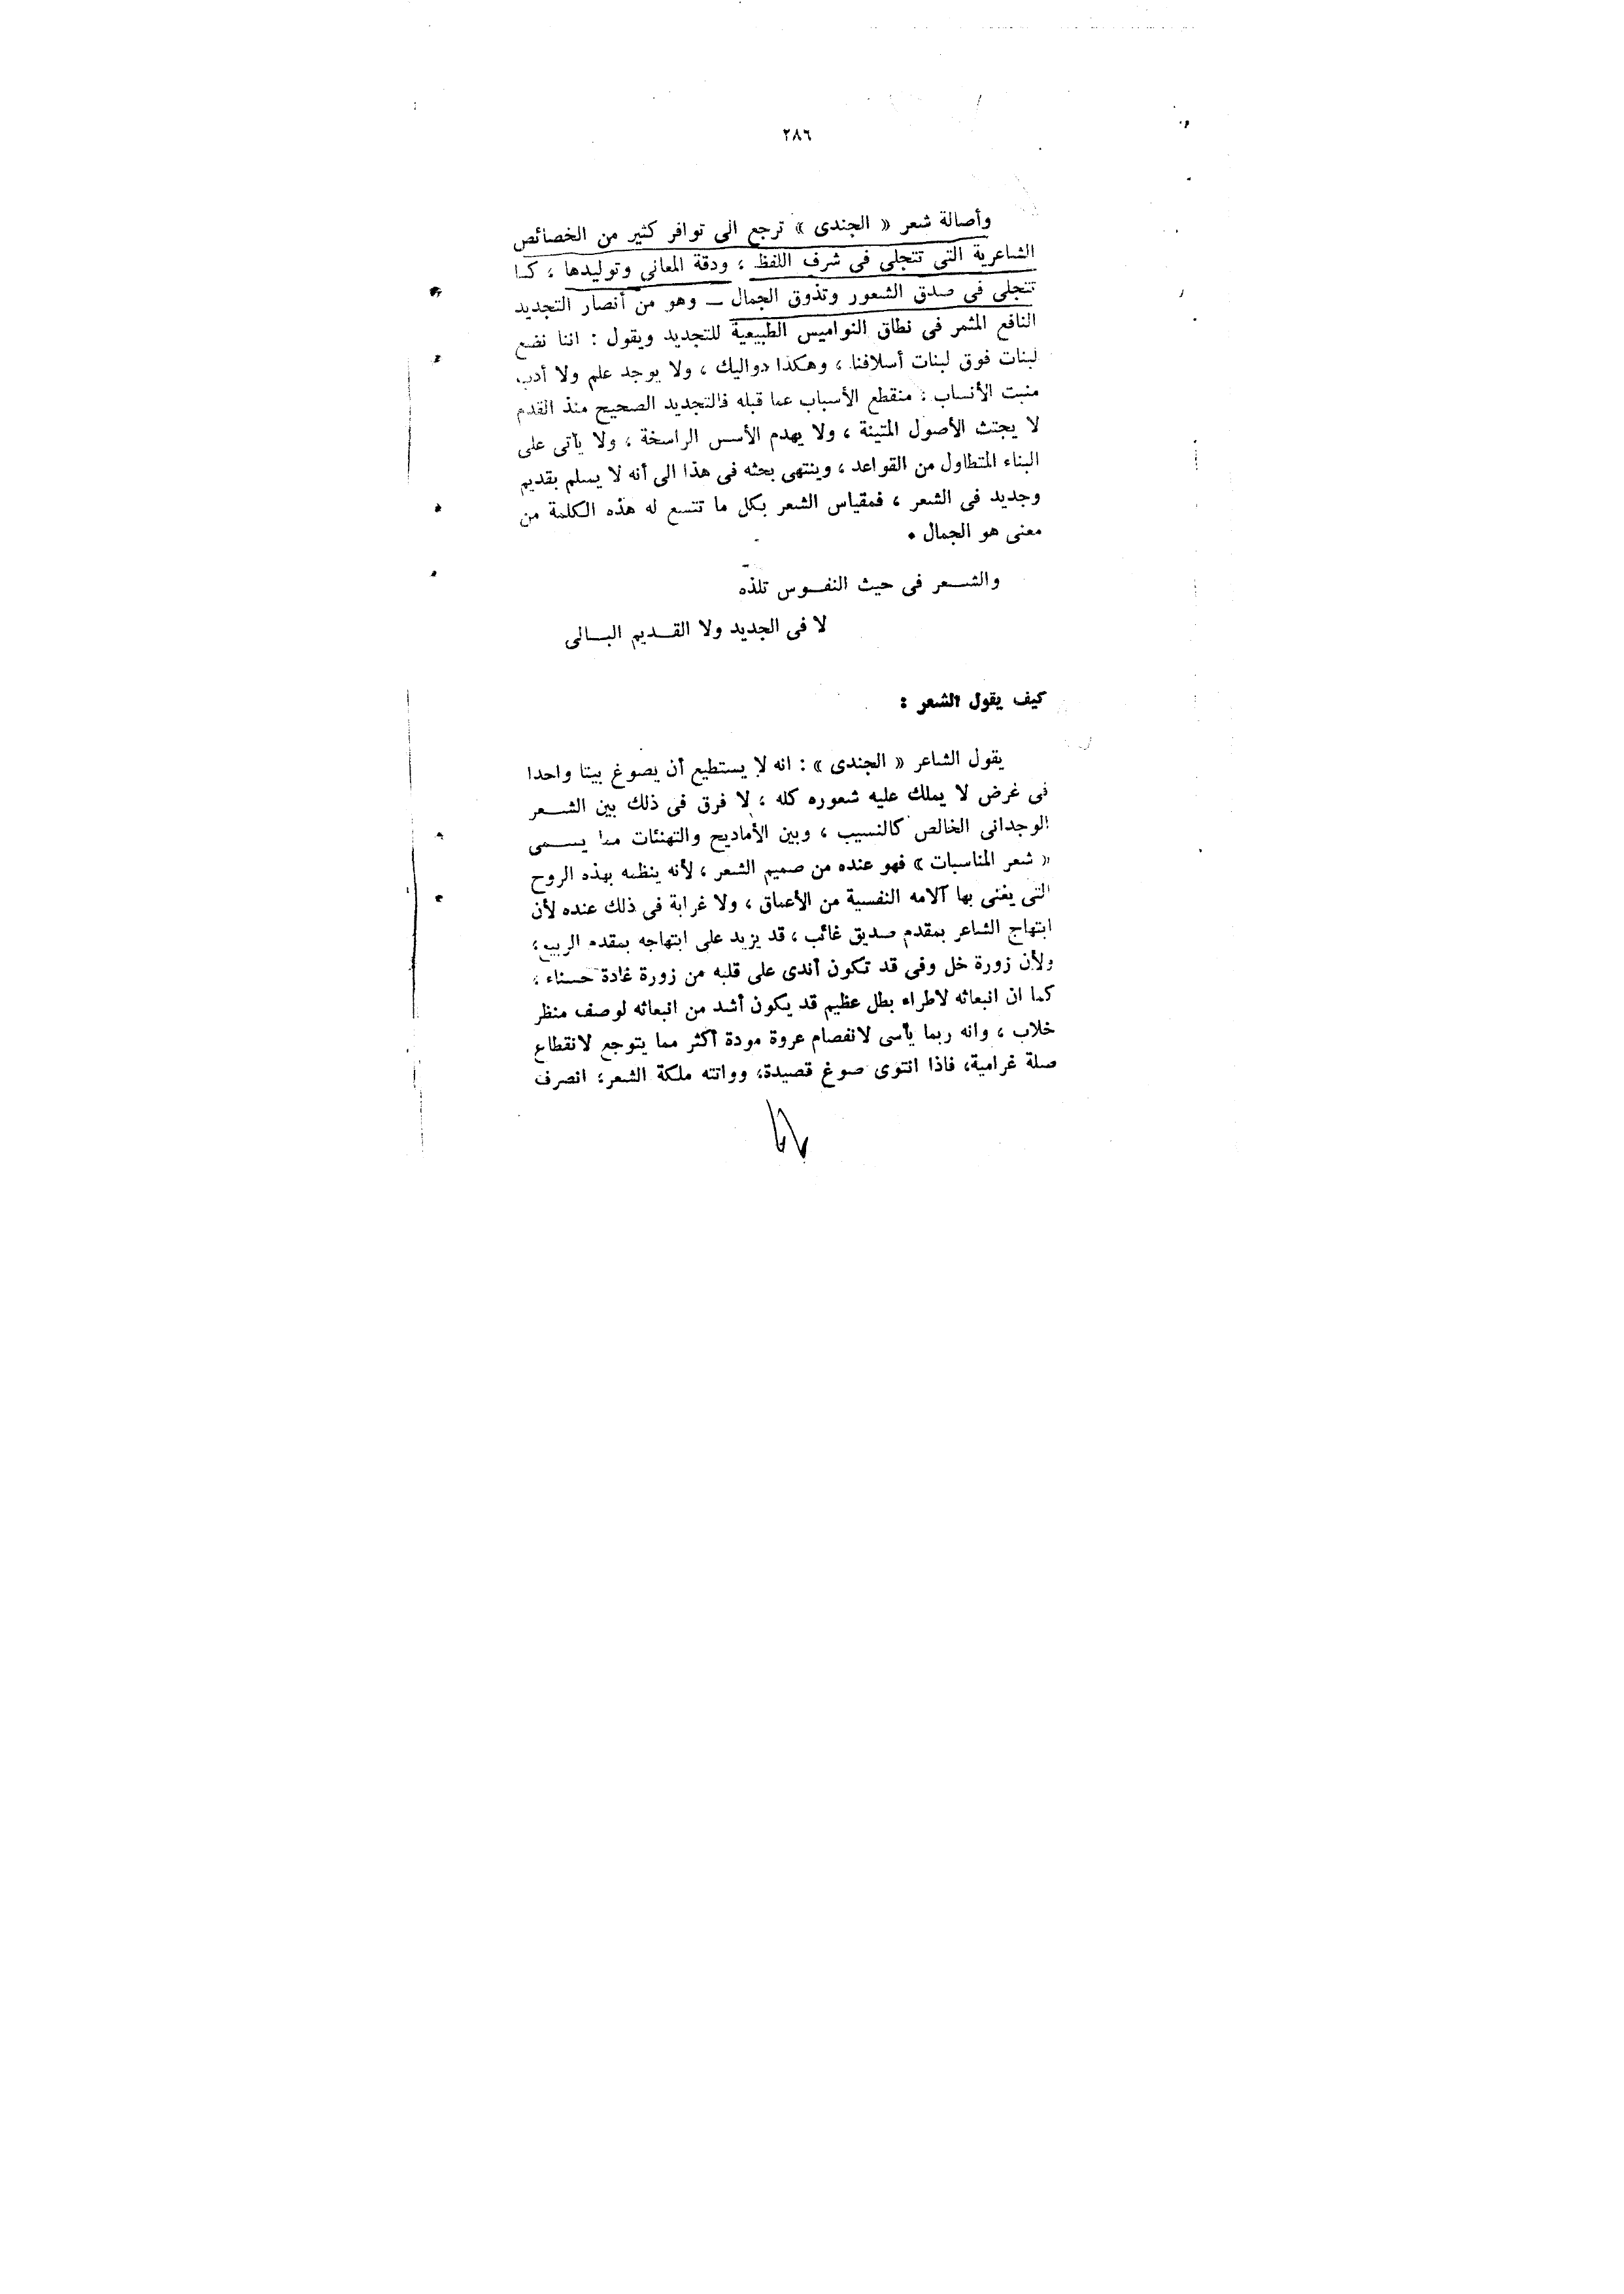 ٢٨٦
وأصالة شعر « الجندى » ترجع الى توافر كثير من الخصائص
الشاعرية التى تتجلى فى شرف اللفظ ، ودقة المعانى وتوليدها ، كما
تتجلى فى صدق الشعور وتذوق الجمال ــ وهو من أنصار التجديد
النافع المثمر فى نطاق النواميس الطبيعية للتجديد ويقول : اننا نضع
لبنات فوق لبنات أسلافنا ، وهكذا دواليك ، ولا يوجد علم ولا أدب
منبت الأنساب ، منقطع الأسباب عما قبله فالتجديد الصحيح منذ القدم
لا يجتث الأصول المتينة ، ولا يهدم الأسس الراسخة ، ولا يأتى على
البناء المتطاول من القواعد ، وينتهى بحثه فى هذا الى أنه لا يسلم بقديم
وجديد فى الشعر ، فمقياس الشعر بكل ما تتسع له هذه الكلمة من
معنى هو الجمال .
والشـــعر فى حيث النفـــوس تلذه
لا فى الجديد ولا القـــديم البـــالى
كيف يقول الشعر :
يقول الشاعر « الجندى » : انه لا يستطيع أن يصوغ بيتا واحدا
فى غرض لا يملك عليه شعوره كله ، لا فرق فى ذلك بين الشـــعر
الوجدانى الخالص كالنسيب ، وبين الأماديح والتهنئات مما يســـمى
« شعر المناسبات » فهو عنده من صميم الشعر ، لأنه ينظمه بهذه الروح
التى يغنى بها آلامه النفسية من الأعماق ، ولا غرابة فى ذلك عنده لأن
ابتهاج الشاعر بمقدم صديق غائب ، قد يزيد على ابتهاجه بمقدم الربيع ،
ولأن زورة خل وفى قد تكون أندى على قلبه من زورة غادة حسناء ،
كما ان انبعاثه لاطراء بطل عظيم قد يكون أشد من انبعاثه لوصف منظر
خلاب ، وانه ربما يأسى لانفصام عروة مودة أكثر مما يتوجع لانقطاع
صلة غرامية، فاذا انتوى صوغ قصيدة، وواتته ملكة الشعر، انصرف